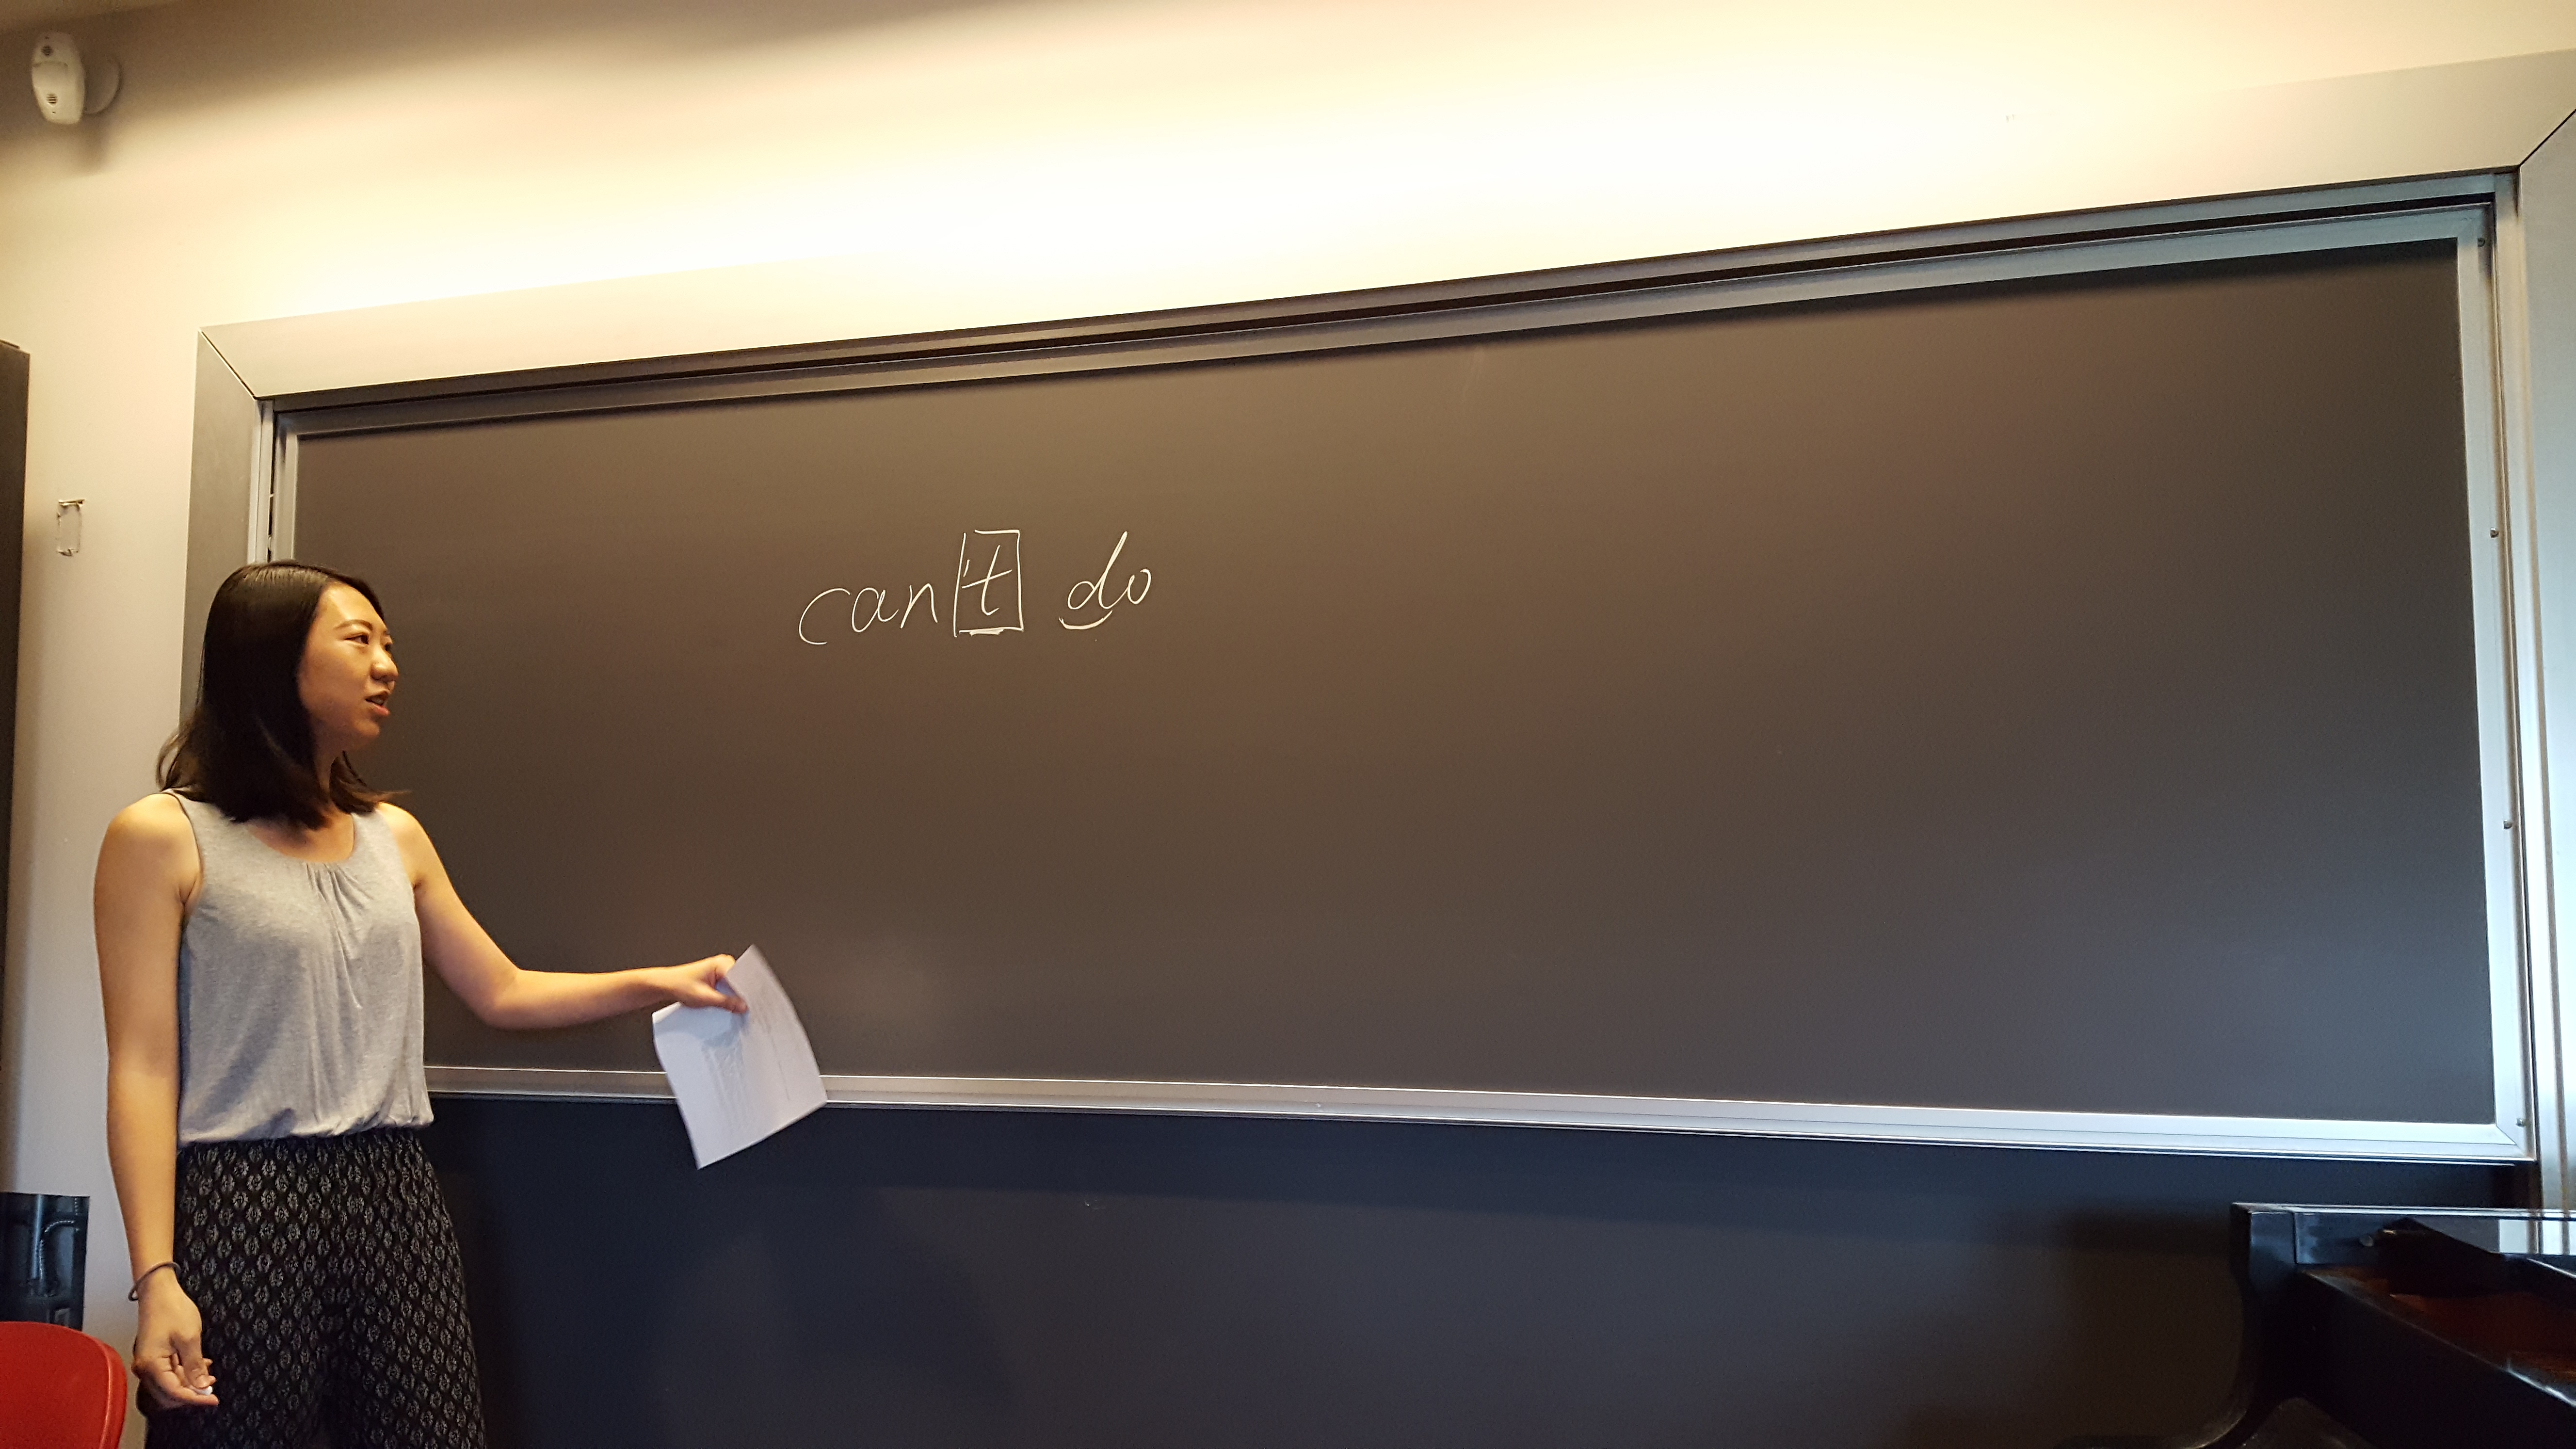 can't do